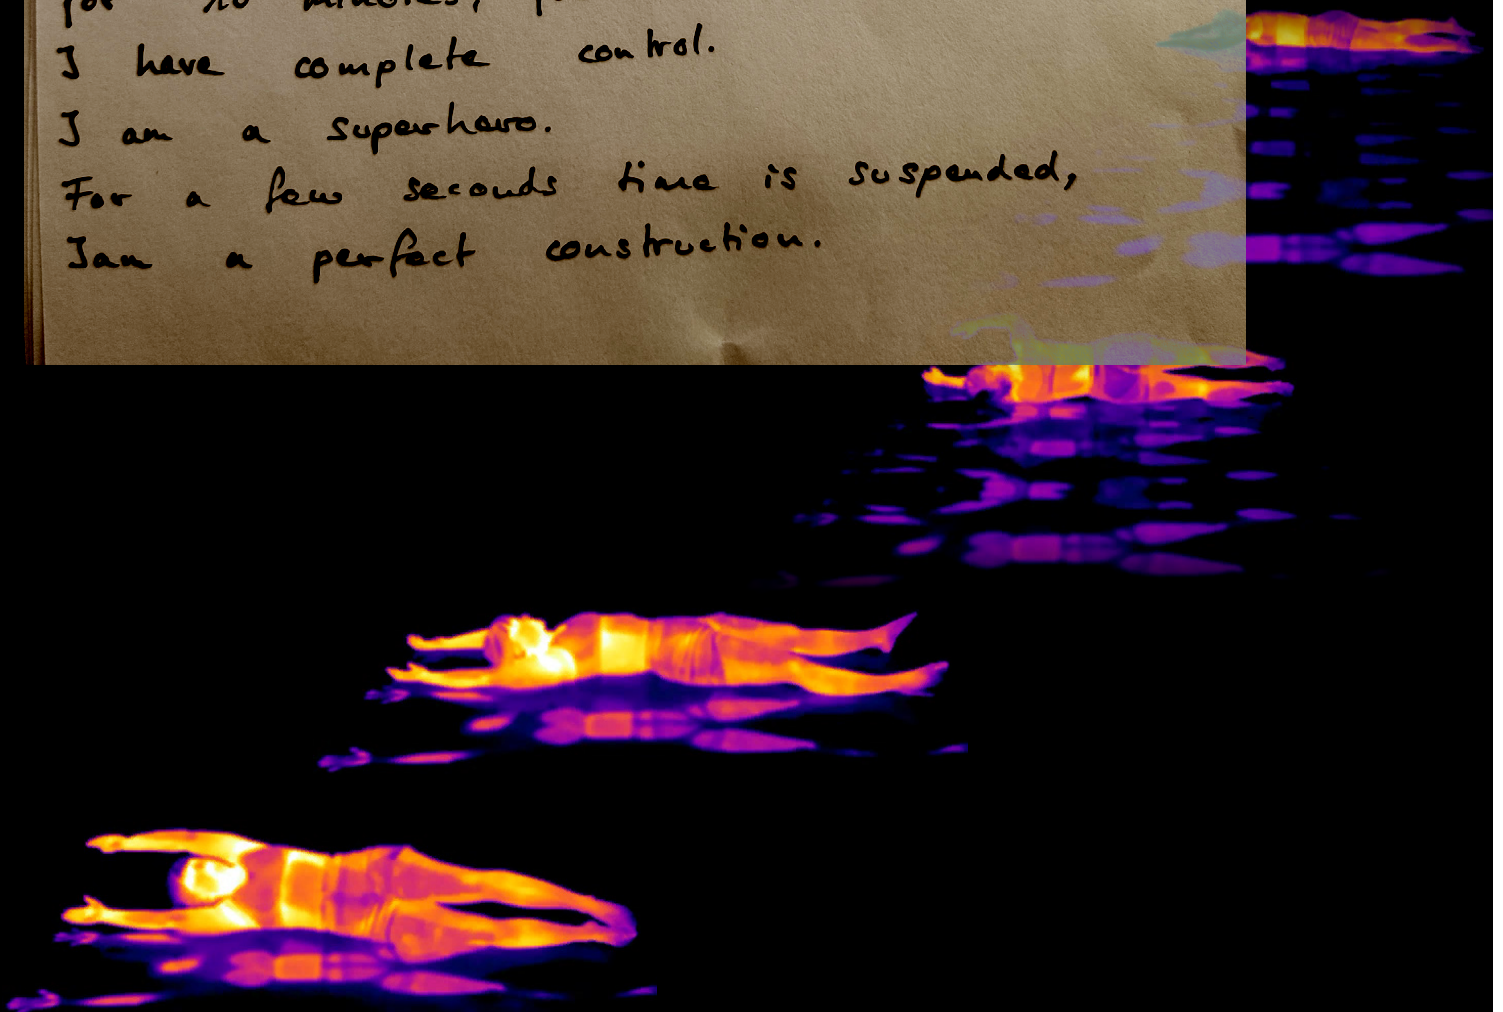 for 10 minutes,
I have complete control.
I am a superhero.
For a few seconds time is suspended,
I am a perfect construction.